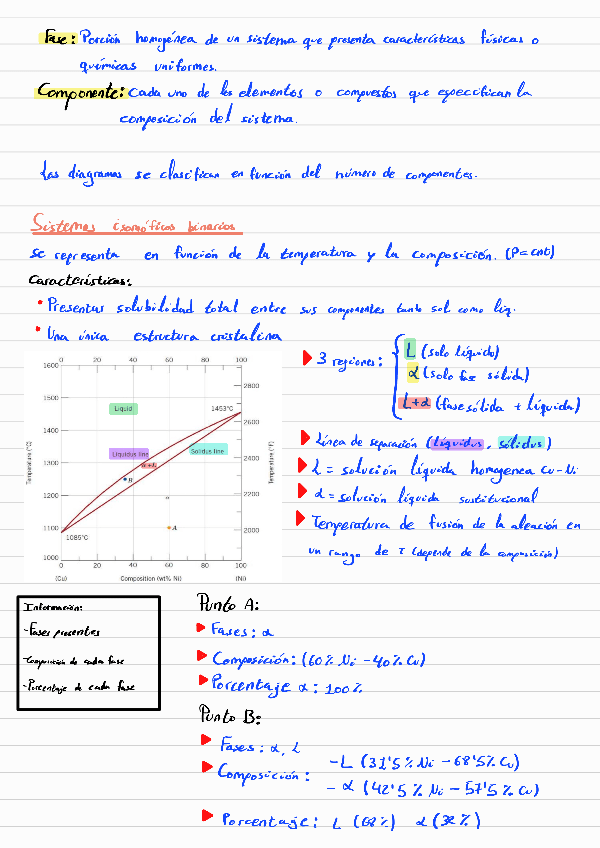 Fase: Porción homogénea de un sistema que presenta características físicas o
químicas uniformes.
Componente: Cada uno de los elementos o compuestos que especifican la
composición del sistema.
Los diagramas se clasifican en función del número de componentes.
Sistemas isomórficos binarios
se representa en función de la temperatura y la composición. (P=cnt)
Características:
• Presentar solubilidad total entre sus componentes tanto sol como liq.
• Una única estructura cristalina
0 20 40 60 80 100
1600
1500
1400
1300
1200
1100
1000
2800
2600
2400
2200
2000
Temperature (°C)
Temperature (°F)
Liquid
1453°C
Liquidus line
Solidus line
α+L
B
A
1085°C
0 20 40 60 80 100
(Cu) Composition (wt% Ni) (Ni)
3 regiones:
L (solo líquido)
α (solo fase sólida)
L+α (fase sólida + líquida)
Línea de separación (líquidus, sólidus)
L = solución líquida homogenea Cu-Ni
α = solución líquida sustitucional
Temperatura de fusión de la aleación en
un rango de T (depende de la composición)
Información:
-Fases presentes
-Composición de cada fase
-Porcentaje de cada fase
Punto A:
Fases: α
Composición: (60% Ni - 40% Cu)
Porcentaje α: 100%
Punto B:
Fases: α, L
Composición:
- L (31'5% Ni - 68'5% Cu)
- α (42'5% Ni - 57'5% Cu)
Porcentaje: L (68%) α (32%)